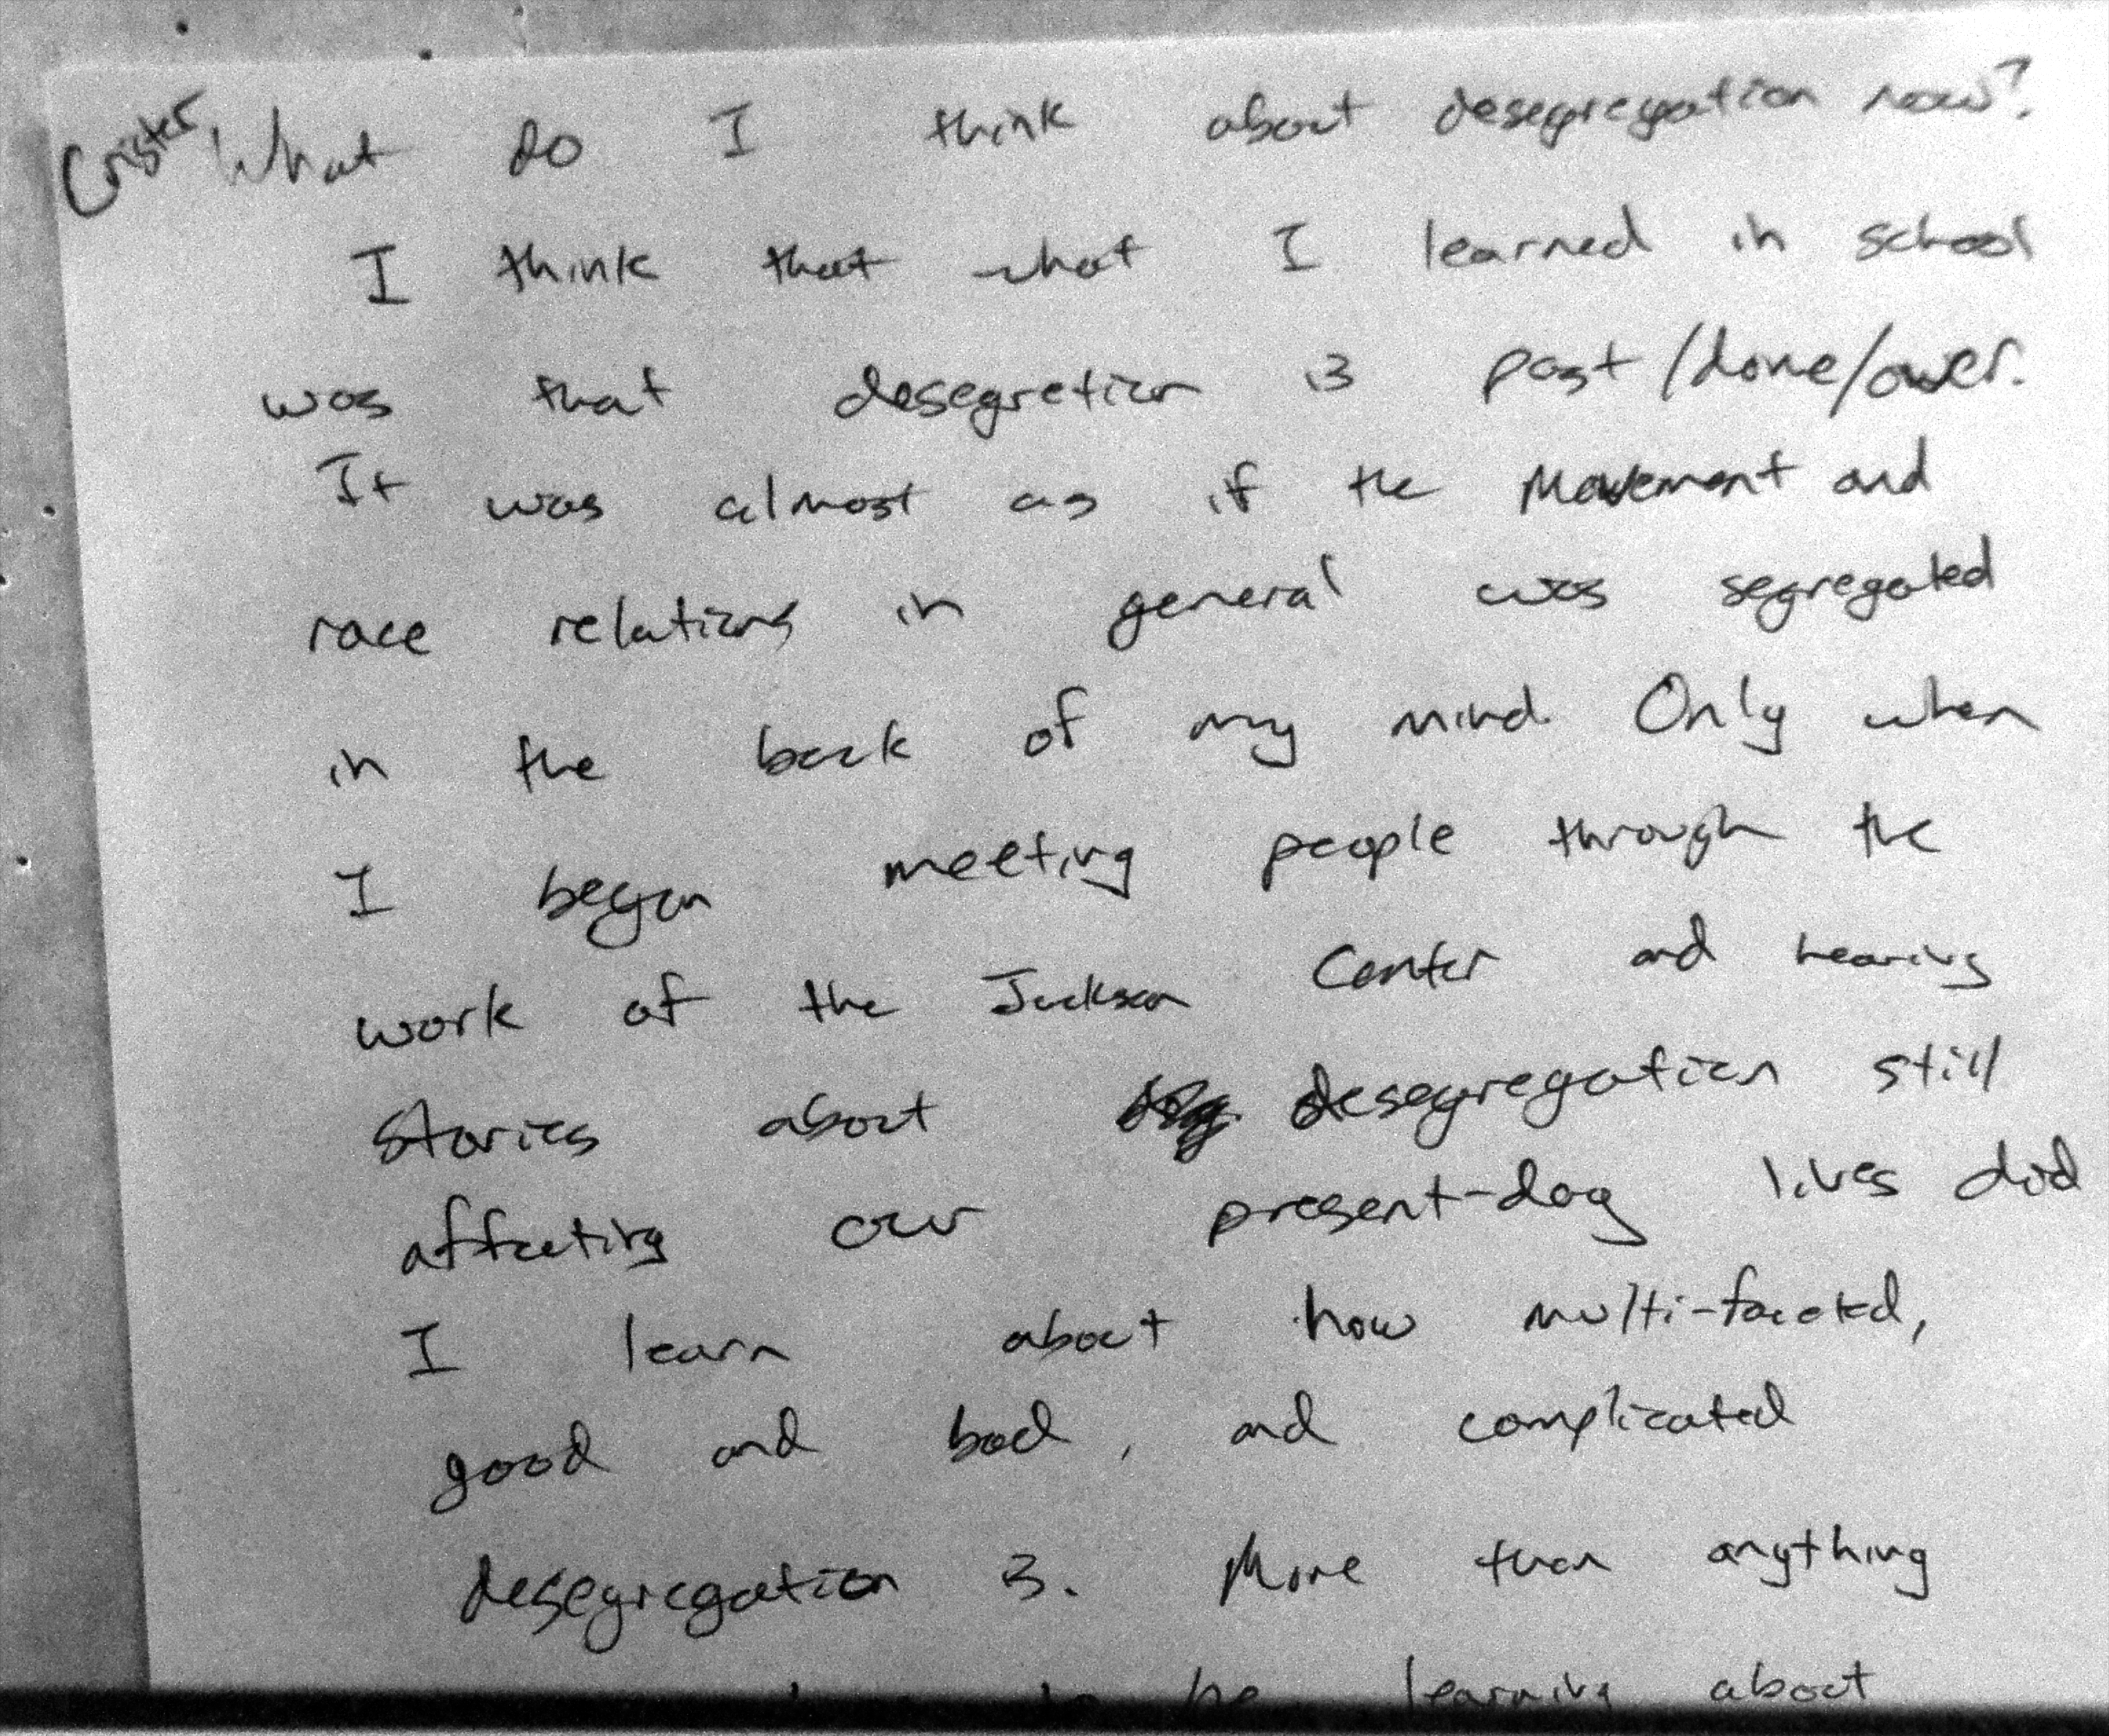 Crister
What do I think about desegregation now?
I think that what I learned in school
was that desegretion is past/done/over.
It was almost as if the Movement and
race relations in general was segregated
in the back of my mind. Only when
I began meeting people through the
work of the Jackson Center and hearing
stories about desegregation still
affecting our present-day lives did
I learn about how multi-faceted,
good and bad, and complicated
desegregation is. More than anything
to be learning about